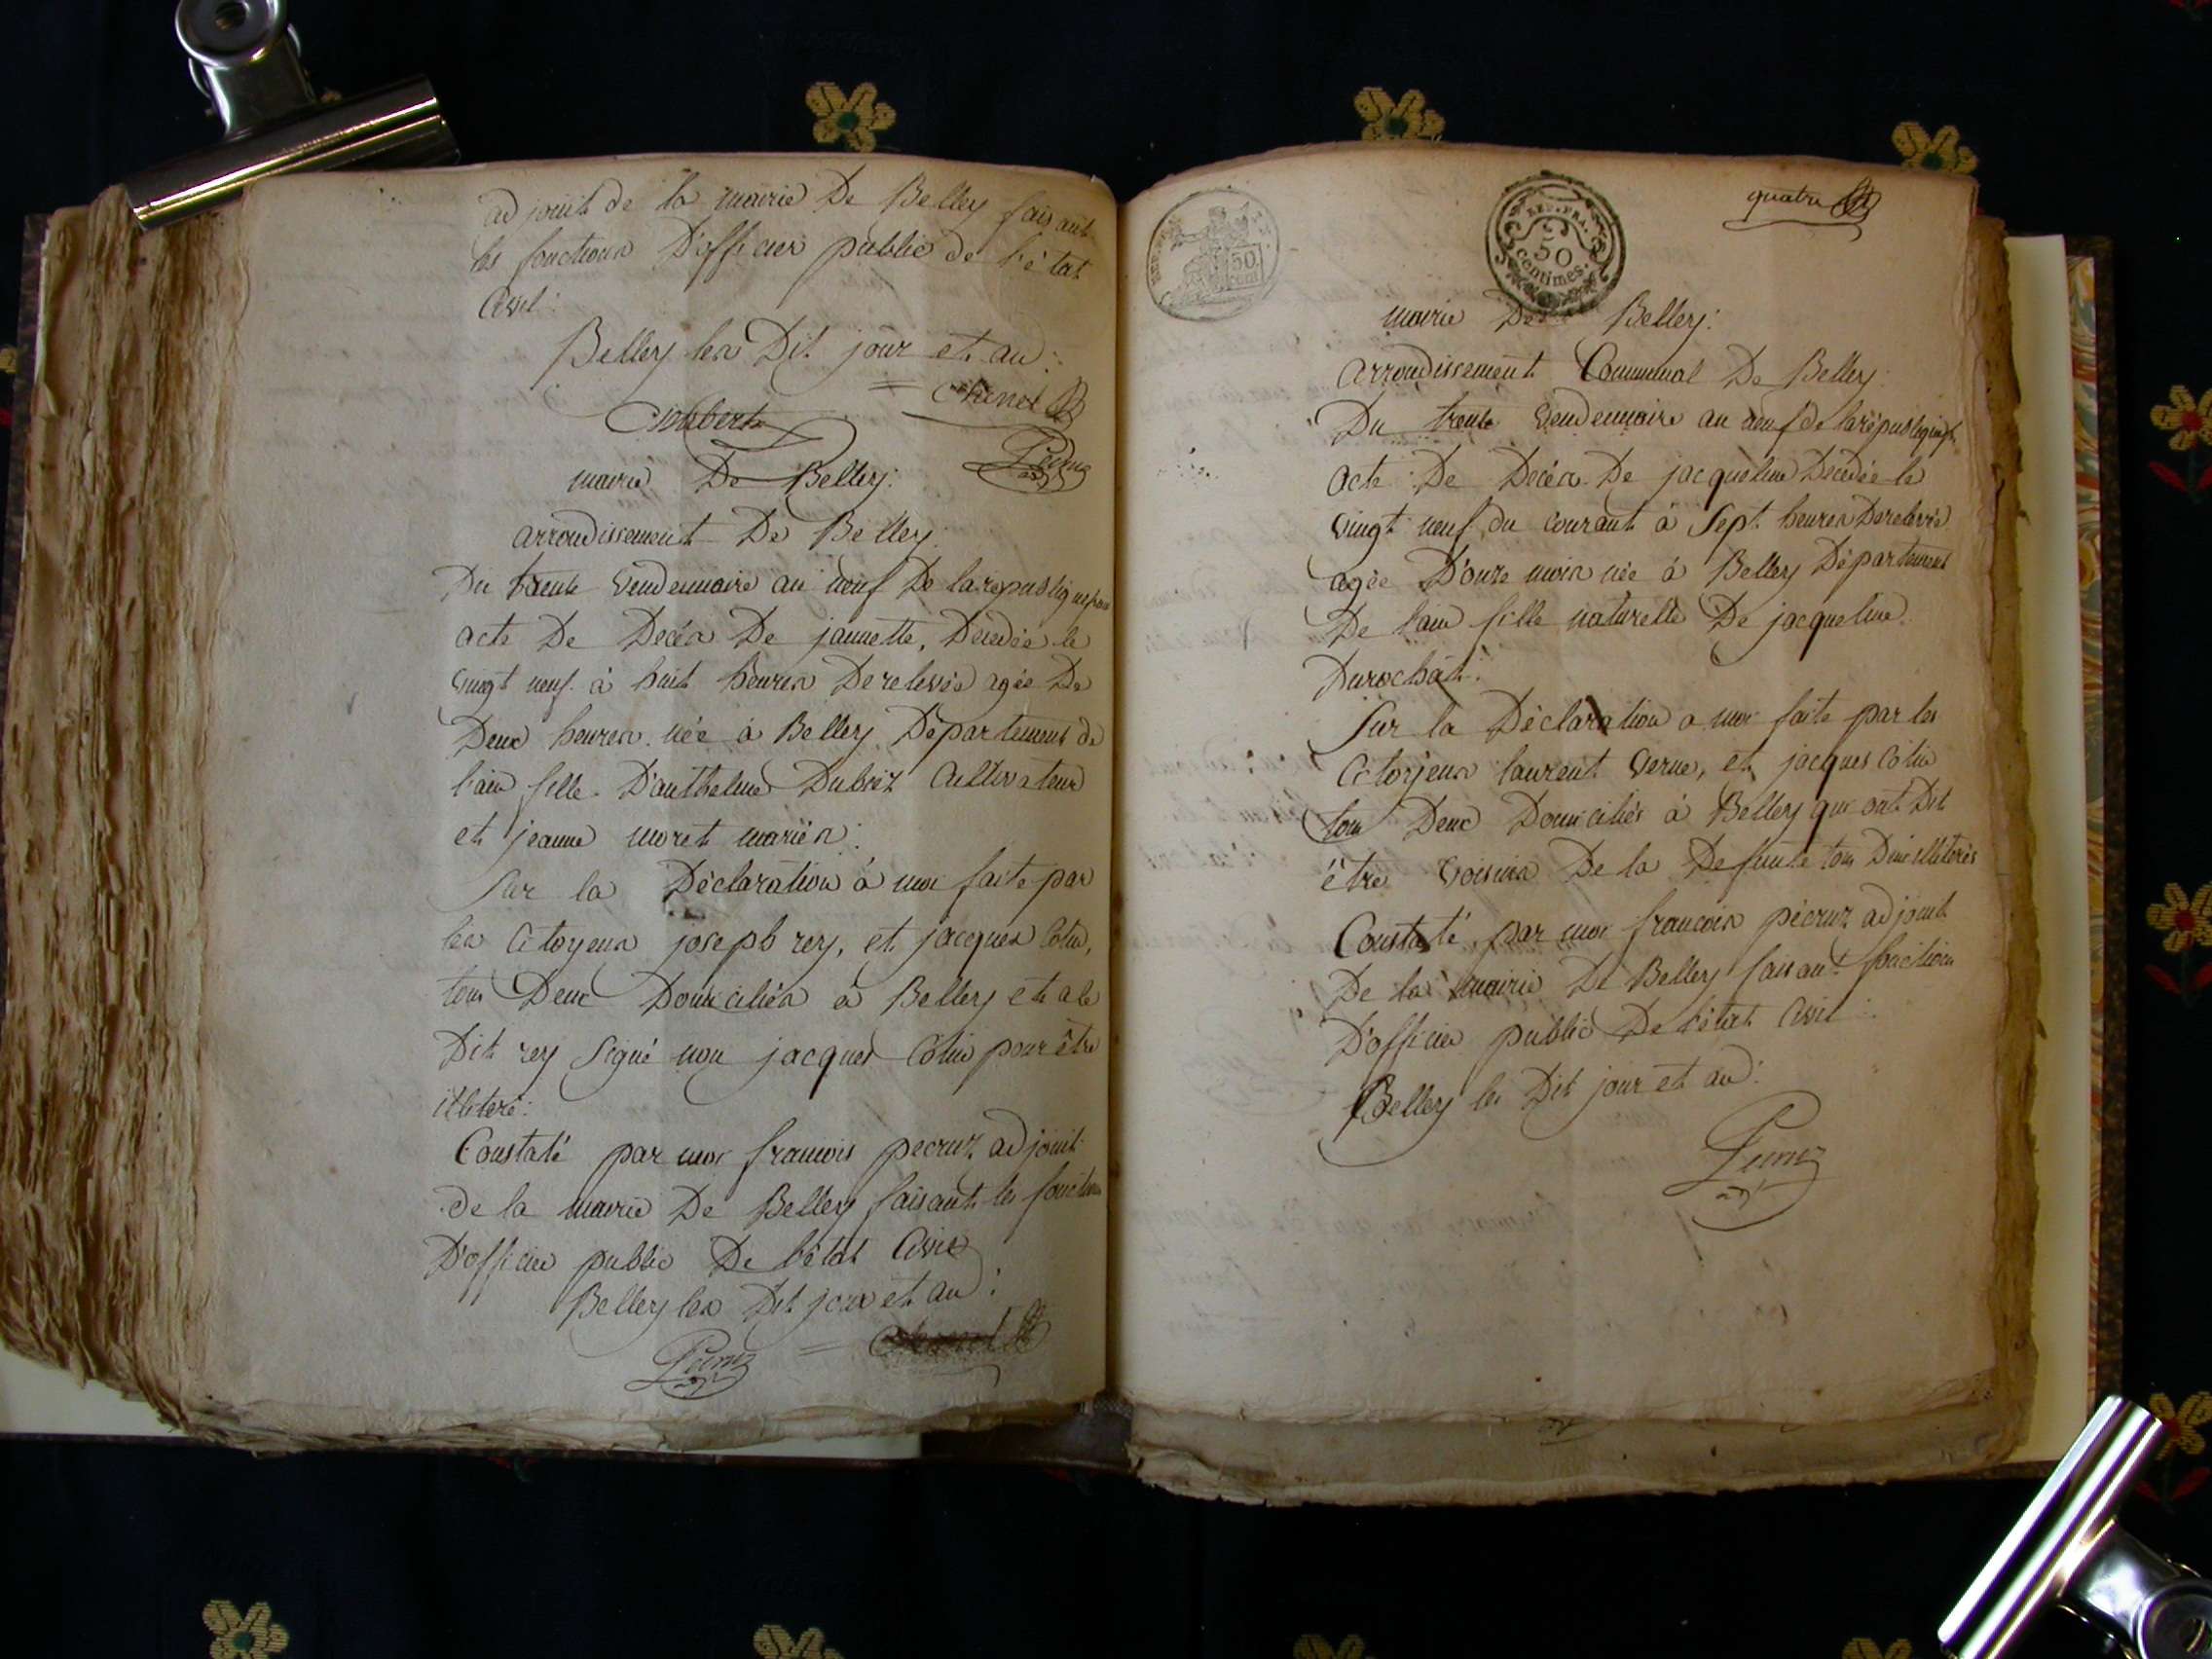 adjoint de la mairie De Belley faisant
les fonctions D'officier public de l'état
Civil:
Belley les Dit jour et an:
= Chenel
Joubert
Pecruz
mairie De Belley:
arrondissement De Belley:
Du trente Vendemiaire an neuf De la république fran
acte De Decés De jannette, Decedée le
vingt neuf à huit heures De relevée agée De
Deux heures née à Belley Département de
l'ain fille D'anthelme Dubiez Cultivateur
et jeanne moret mariés:
Sur la Déclaration à moi faite par
les Citoyens joseph rey, et jacques Cotin,
tous Deux Domiciliés à Belley et a le
Dit rey Signé non jacques Cotin pour être
illiteré:
Constaté par moi francois pecruz adjoint
de la mairie De Belley faisant les fonctions
D'officier public De l'état Civil
Belley les Dit jour et an:
Pecruz =
REP. FRA.
50
cent
REP. FRA.
50
centimes.
quatre
mairie De Belley:
arrondissement Communal De Belley:
Du trente Vendemiaire an neuf de la république
acte De Decés De jacqueline Decedée le
vingt neuf du courant à Sept heures De relevée
agée D'onze mois née à Belley Département
De l'ain fille naturelle De jacqueline
Durochat:
Sur la Déclaration a moi faite par les
Citoyens laurent Verne, et jacques Cotin
tous Deux Domiciliés à Belley qui ont Dit
être voisins De la Defunte tous Deux illiterés
Constaté par moi francois pécruz adjoint
De la mairie De Belley faisant fonctions
D'officier public De l'état Civil:
Belley les Dit jour et an:
Pecruz